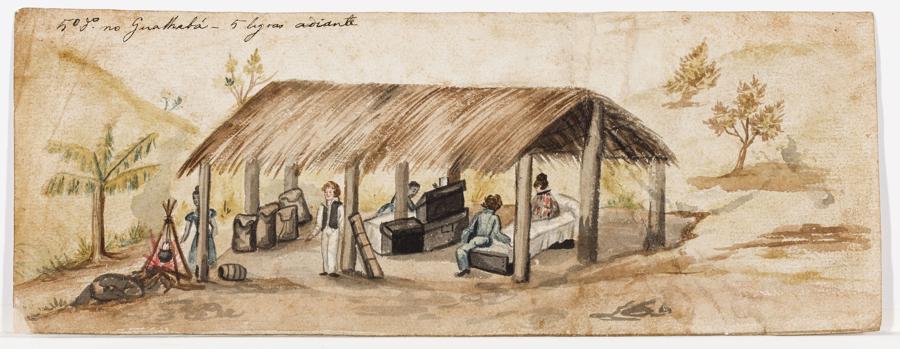 5º no Guathabá - 5 legoas adiante